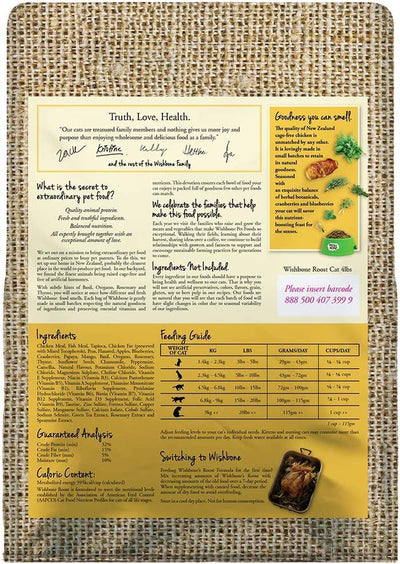 Truth, Love, Health.
"Our cats are treasured family members and nothing gives us more joy and
purpose than enjoying wholesome and delicious food as a family."
and the rest of the Wishbone Family
Goodness you can smell.
The quality of New Zealand
cage-free chicken is
unmatched by any
other. It is lovingly made in
small batches to
retain its natural
goodness.
Seasoned
with
an exquisite balance
of herbal botanicals,
cranberries and blueberries
your cat will savor
this nutrient-
boosting feast for
the senses.
What is the secret to
extraordinary pet food?
Quality animal protein.
Fresh and truthful ingredients.
Balanced nutrition.
All expertly brought together with an
exceptional amount of love.
We set out on a mission to bring extraordinary pet food
at ordinary prices to busy pet parents. To do this, we
set up our home in New Zealand, probably the cleanest
place in the world to produce pet food. In our backyard,
we found the finest animals being raised cage-free and
free of artificial hormones.
With subtle hints of Basil, Oregano, Rosemary and
Thyme, you will notice at once how different and fresh
Wishbone food smells. Each bag of Wishbone is gently
made in small batches respecting the natural goodness
of ingredients and preserving essential vitamins and
nutrients. This devotion ensures each bowl of food your
cat enjoys is packed full of goodness few other pet foods
can match.
We celebrate the families that help
make this food possible.
Each year we visit the families who raise and grow the
meats and vegetables that make Wishbone Pet Foods so
exceptional. Walking their fields, learning about their
harvest, sharing ideas over a coffee, we continue to build
relationships with pastors and farmers to support and
encourage sustainable farming practices for generations
to come.
Ingredients Not Included.
Every ingredient in our foods should have a purpose to
bring health and wellness to our cats. That is why you
will see no artificial preservatives, colors, flavors, grain,
gluten, soy or beet pulp in our recipes. Our foods are
so natural that you will see that each batch of food will
have slight changes in color due to seasonal variability
of our ingredients.
Wishbone Roost Cat 4lbs
Please insert barcode
888 500 407 399 9
Ingredients
Chicken Meal, Fish Meal, Tapioca, Chicken Fat (preserved
with Mixed Tocopherols), Peas, Flaxseed, Apples, Blueberries,
Cranberries, Papaya, Mango, Basil, Oregano, Rosemary,
Thyme, Sunflower Seeds, Chamomile, Peppermint,
Camellia, Natural Flavors, Potassium Chloride, Sodium
Chloride, Magnesium Sulphate, Choline Chloride, Vitamin
E Supplement, Niacin (Vitamin B3), Calcium Pantothenate
(Vitamin B5), Vitamin A Supplement, Thiamine Mononitrate
(Vitamin B1), Riboflavin Supplement, Pyridoxine
Hydrochloride (Vitamin B6), Biotin (Vitamin B7), Vitamin
B12 Supplement, Vitamin D3 Supplement, Folic Acid
(Vitamin B9), Taurine, Zinc Sulfate, Ferrous Sulfate, Copper
Sulfate, Manganese Sulfate, Calcium Iodate, Cobalt Sulfate,
Sodium Selenite, Green Tea Extract, Rosemary Extract and
Spearmint Extract.
Guaranteed Analysis
Crude Protein (min) 32%
Crude Fat (min) 15%
Crude Fiber (max) 5%
Moisture (max) 10%
Caloric Content:
Metabolized energy (calculated)
Wishbone Roost is formulated to meet the nutritional levels
established by the Association of American Feed Control
(AAFCO) Cat Food Nutrient Profiles for cats of all life stages.
Feeding Guide
WEIGHT OF CAT KG LBS GRAMS/DAY CUPS/DAY
1.4kg - 2.3kg 3lbs - 5lbs 29gm - 43gm
2.3kg - 4.5kg 5lbs - 10lbs 43gm - 72gm
4.5kg - 6.8kg 10lbs - 15lbs 72gm - 100gm
6.8kg - 9kg 15lbs - 20lbs 100gm - 115gm
9kg ++ 20lbs ++ 115gm ++ 1 ++
1 cup = 115gm
Adjust feeding levels to your cat's individual needs. Kittens and nursing cats may consume more than
the recommended amounts per day. Keep fresh water available at all times.
Switching to Wishbone
Feeding Wishbone's Roost Formula for the first time?
Mix increasing amounts of Wishbone's Roost while
decreasing amounts of the old food over a 7-day period.
When supplementing with canned food, decrease the
amount of dry food to avoid overfeeding.
Store in a cool dry place. Not for human consumption.